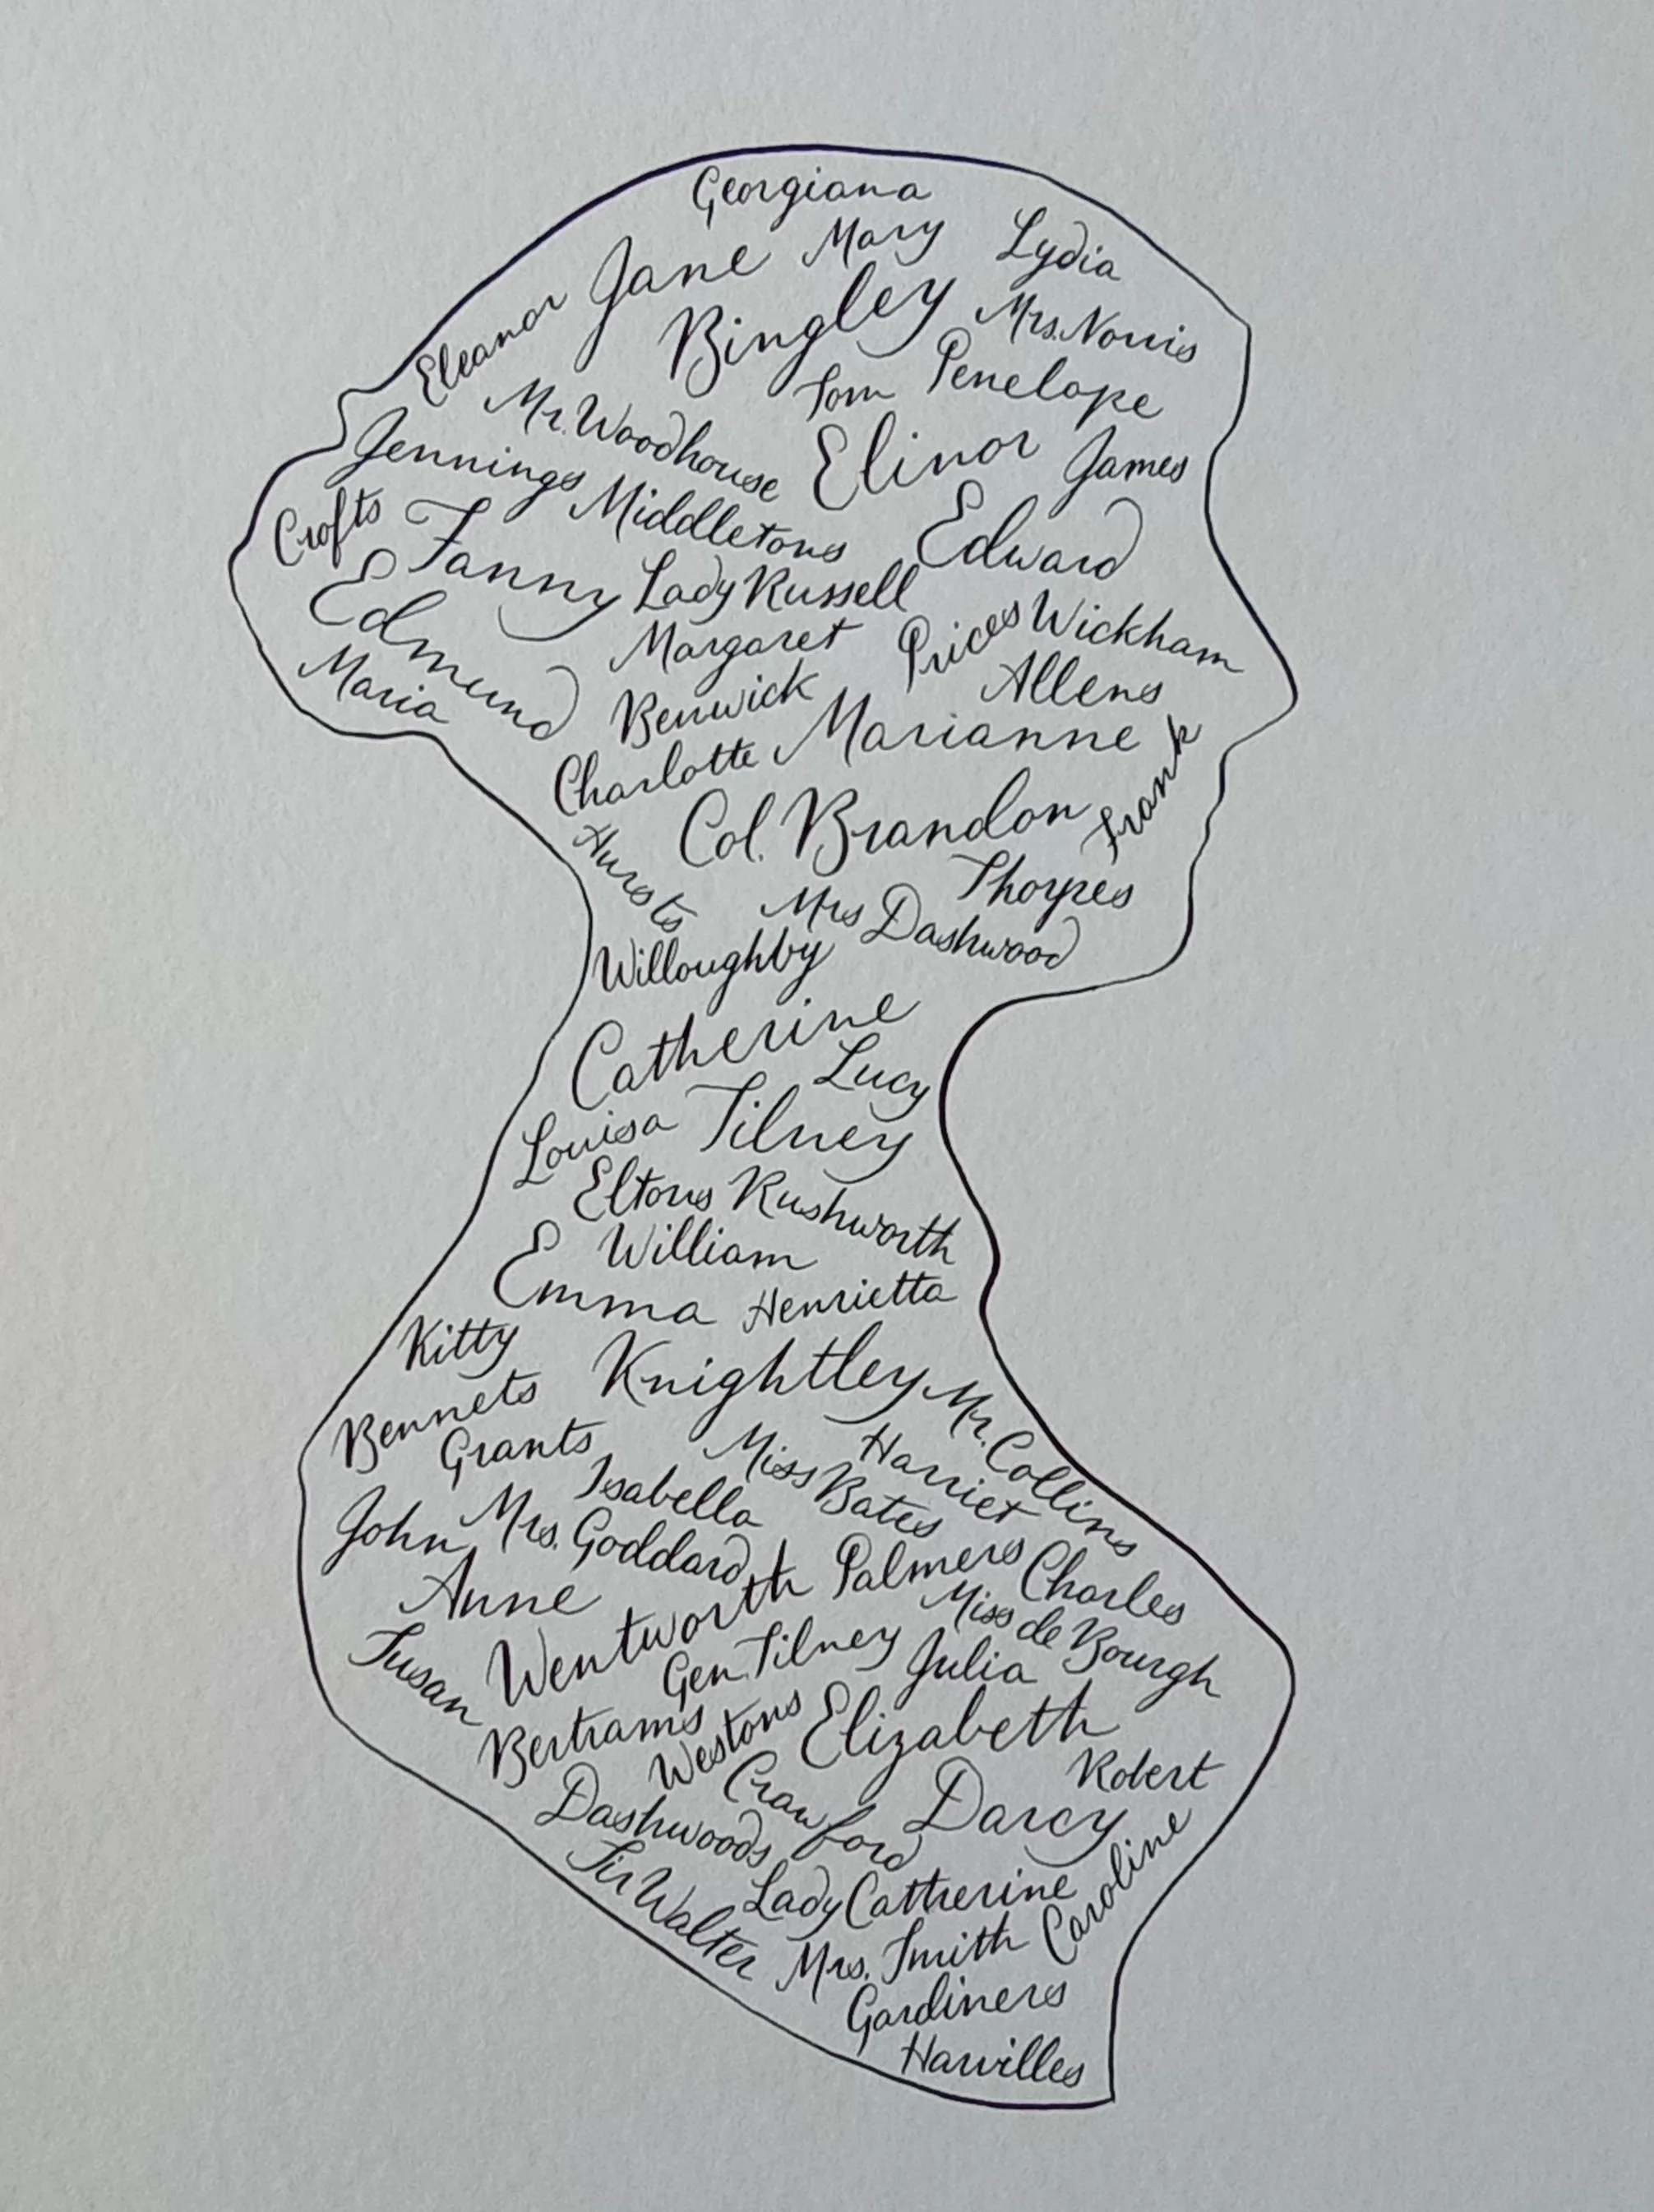 Georgiana
Mary
Lydia
Jane
Eleanor
Bingley
Mrs. Norris
Penelope
Tom
Mr. Woodhouse
Elinor
James
Jennings
Middletons
Crofts
Fanny
Edward
Lady Russell
Edmund
Margaret
Prices
Wickham
Maria
Benwick
Allens
Marianne
Charlotte
Frank
Col. Brandon
Hursts
Thorpes
Mrs Dashwood
Willoughby
Catherine
Lucy
Louisa
Tilney
Eltons
Rushworth
William
Emma
Henrietta
Kitty
Knightley
Mr. Collins
Bennets
Grants
Miss Bates
Harriet
Isabella
John
Mrs. Goddard
Palmers
Charles
Anne
Wentworth
Miss de Bourgh
Susan
Gen. Tilney
Julia
Bertrams
Westons
Elizabeth
Robert
Crawford
Darcy
Dashwoods
Caroline
Sir Walter
Lady Catherine
Mrs. Smith
Gardiners
Harvilles